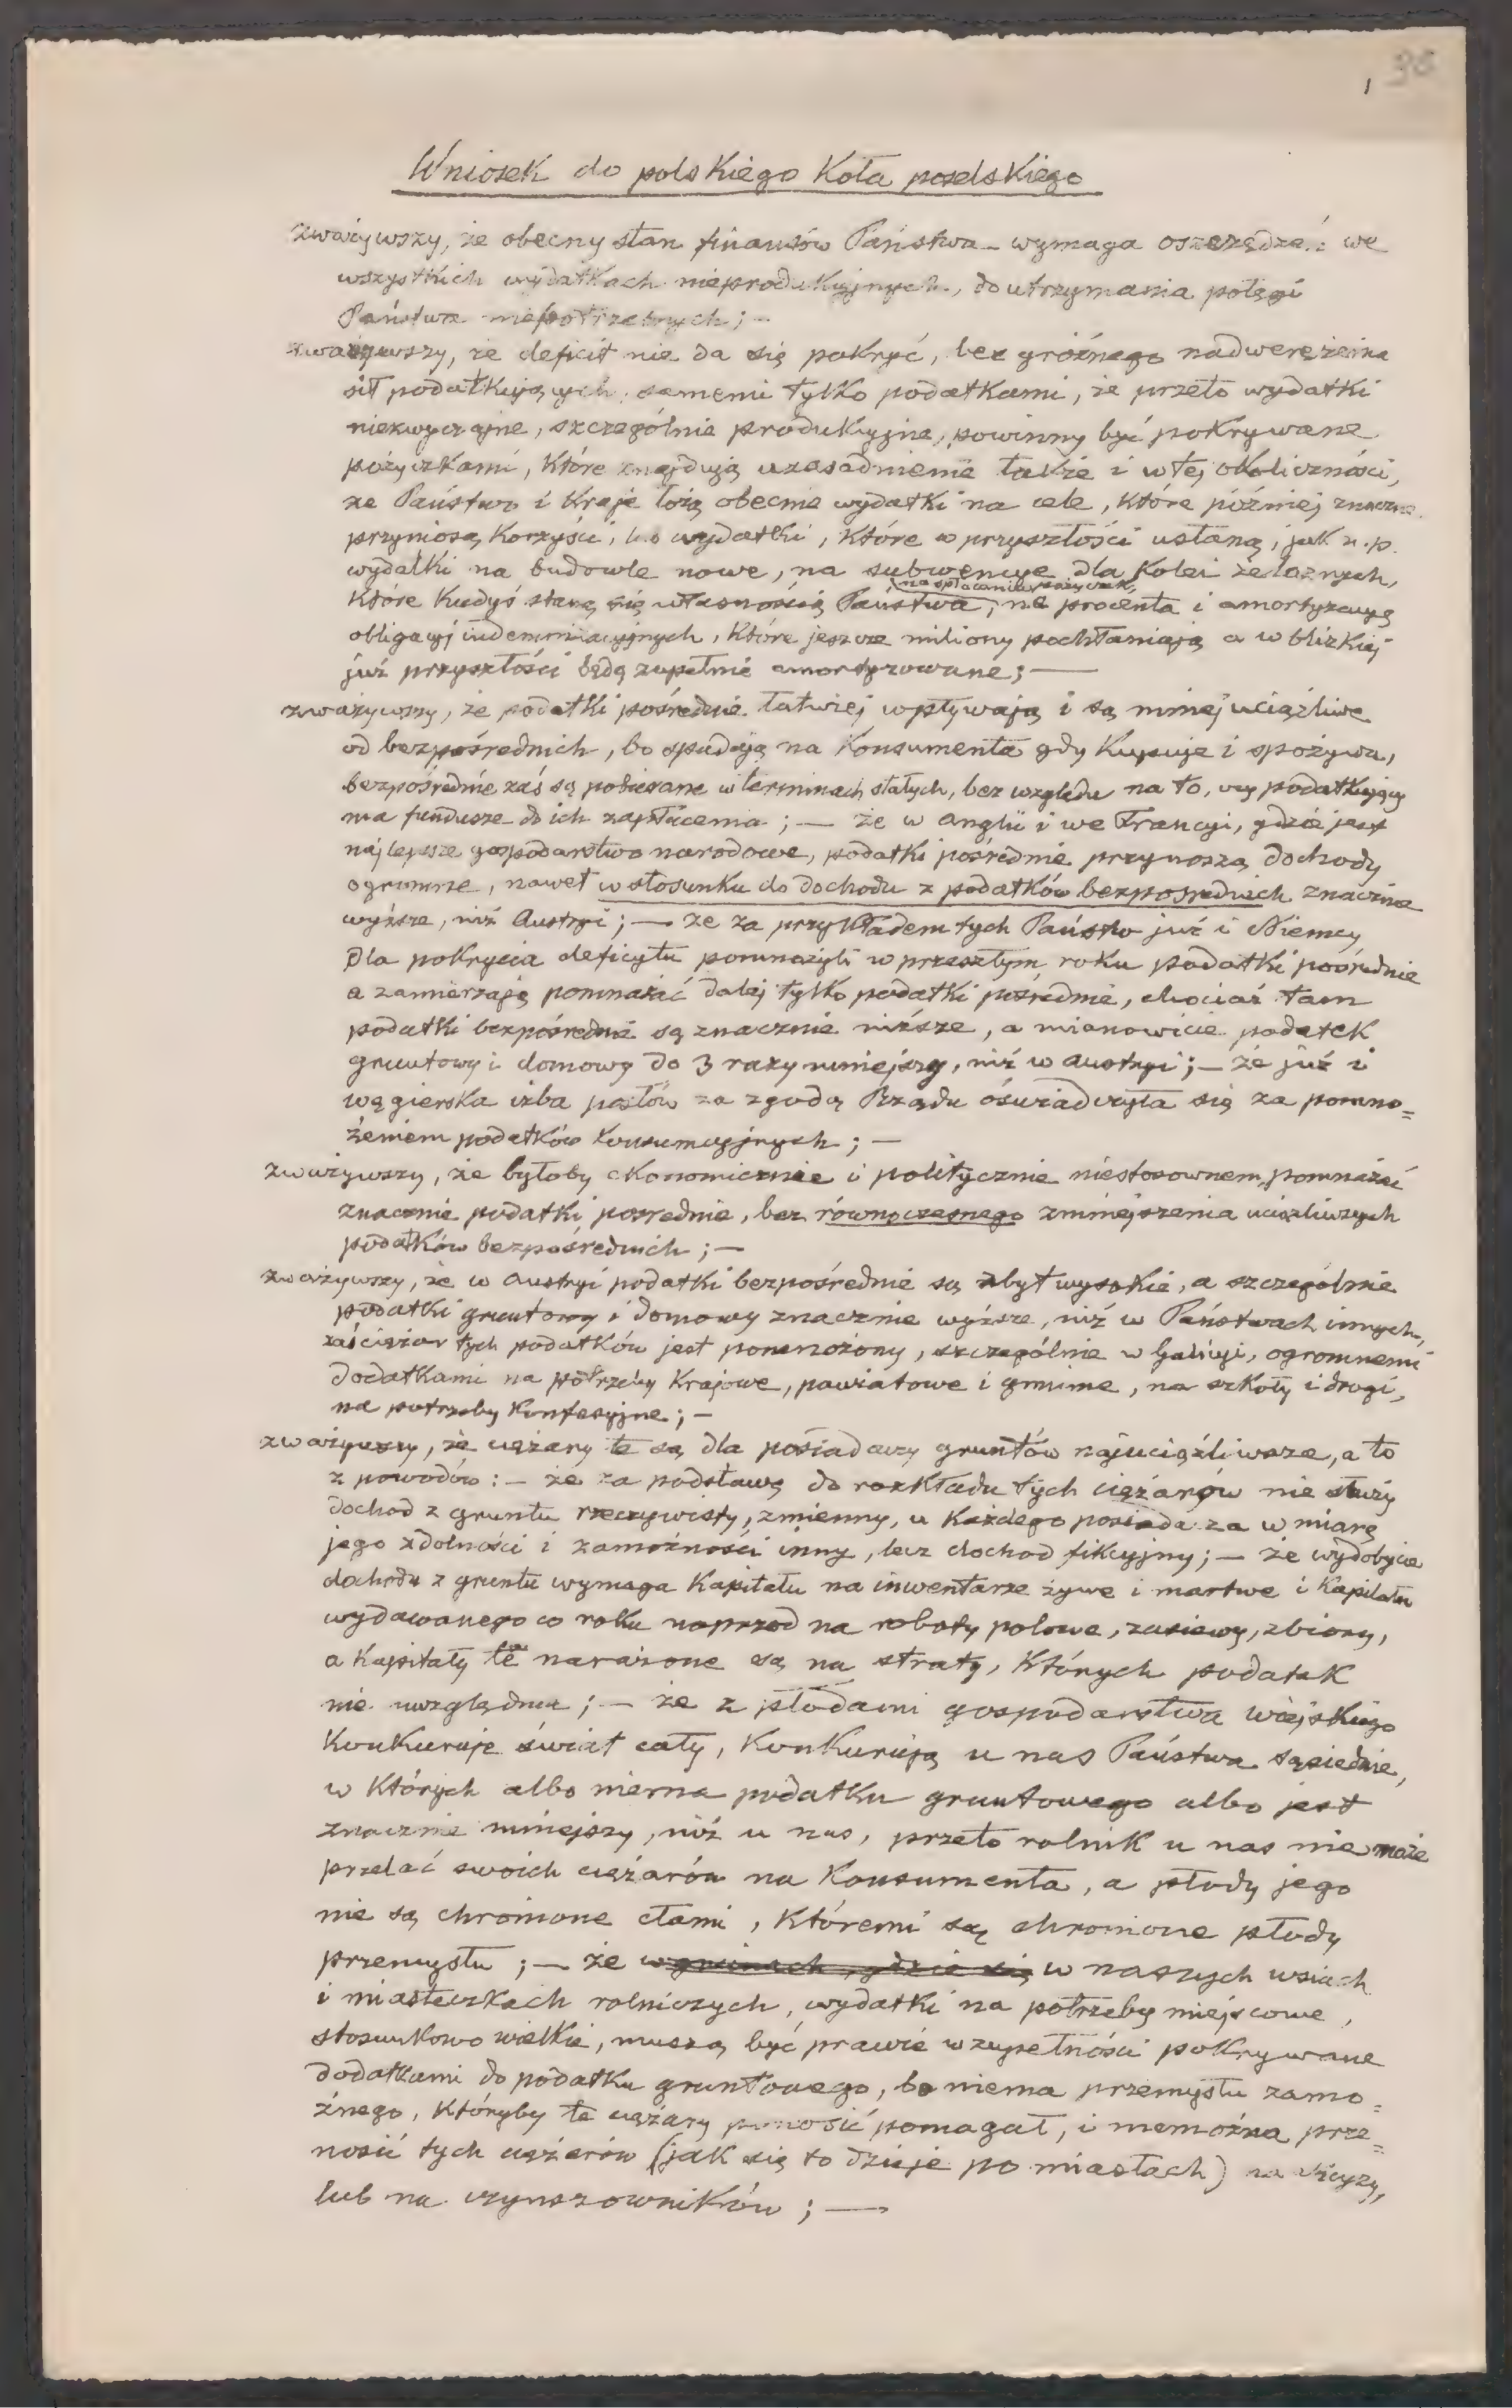 1 36
Wniosek do polskiego Koła poselskiego
zważywszy, że obecny stan finansów Państwa wymaga oszczędzeń we
wszystkich wydatkach nieprodukcyjnych, do utrzymania potęgi
Państwa niepotrzebnych; —
zważywszy, że deficit nie da się pokryć, bez groźnego nadwerężenia
sił podatkujących, samemi tylko podatkami, że przeto wydatki
niezwyczajne, szczególnie produkcyjne, powinny być pokrywane
pożyczkami, które znajdują uzasadnienie także i w tej okoliczności,
że Państwo i Kraje łożą obecnie wydatki na cele, które później znaczne
przyniosą korzyści, lub wydatki, które w przyszłości ustaną, jak n. p.
wydatki na budowle nowe, na subwencye dla Kolei żelaznych,
na spłacanie pożyczek,
które kiedyś staną się własnością Państwa, na procenta i amortyzacyę
obligacyj indemnizacyjnych, które jeszcze miliony pochłaniają a w blizkiej
już przyszłości będą zupełnie amortyzowane; —
zważywszy, że podatki pośrednie łatwiej wpływają i są mniej uciążliwe
od bezpośrednich, bo spadają na Konsumenta gdy Kupuje i spożywa,
bezpośrednie zaś są pobierane w terminach stałych, bez względu na to, czy podatkujący
ma fundusze do ich zapłacenia; — że w Anglii i we Francyi, gdzie jest
najlepsze gospodarstwo narodowe, podatki pośrednie przynoszą dochody
ogromne, nawet w stosunku do dochodu z podatków bezpośrednich znacznie
wyższe, niż Austryi; — że za przykładem tych Państw już i Niemcy
dla pokrycia deficytu pomnożyli w przeszłym roku podatki pośrednie
a zamierzają pomnażać dalej tylko podatki pośrednie, chociaż tam
podatki bezpośrednie są znacznie niższe, a mianowicie podatek
gruntowy i domowy do 3 razy mniejszy, niż w Austryi; — że już i
węgierska izba posłów za zgodą Rządu oświadczyła się za pomno=
żeniem podatków konsumcyjnych; —
zważywszy, że byłoby ekonomicznie i politycznie niestosownem, pomnażać
znacznie podatki pośrednie, bez równoczesnego zmniejszenia uciążliwszych
podatków bezpośrednich; —
zważywszy, że w Austryi podatki bezpośrednie są zbyt wysokie, a szczególnie
podatki gruntowy i domowy znacznie wyższe, niż w Państwach innych,
zaś ciężar tych podatków jest pomnożony, szczególnie w Galicyi, ogromnemi
dodatkami na potrzeby Krajowe, powiatowe i gminne, na szkoły i drogi,
na potrzeby Konfesyjne; —
zważywszy, że ciężary te są dla posiadaczy gruntów najuciążliwsze, a to
z powodów: — że za podstawę do rozkładu tych ciężarów nie służy
dochod z gruntu rzeczywisty, zmienny, u każdego posiadacza w miarę
jego zdolności i zamożności inny, lecz dochod fikcyjny; — że wydobycie
dochodu z gruntu wymaga Kapitału na inwentarze żywe i martwe i Kapitału
wydawanego co roku naprzod na roboty polowe, zasiewy, zbiory,
a Kapitały te narażone są na straty, których podatek
nie uwzględnia; — że z płodami gospodarstwa wiejskiego
Konkuruje świat cały, Konkurują u nas Państwa sąsiednie,
w których albo niema podatku gruntowego albo jest
znacznie mniejszy, niż u nas, przeto rolnik u nas nie może
przelać swoich ciężarów na Konsumenta, a płody jego
nie są chronione cłami, któremi są chronione płody
przemysłu; — że w gminach, gdzie się w naszych wsiach
i miasteczkach rolniczych, wydatki na potrzeby miejscowe,
stosunkowo wielkie, muszą być prawie w zupełności pokrywane
dodatkami do podatku gruntowego, bo niema przemysłu zamo=
żnego, któryby te ciężary ponosić pomagał, i niemożna prze=
nosić tych ciężarów (jak się to dzieje po miastach) na
lub na czynszowników; —